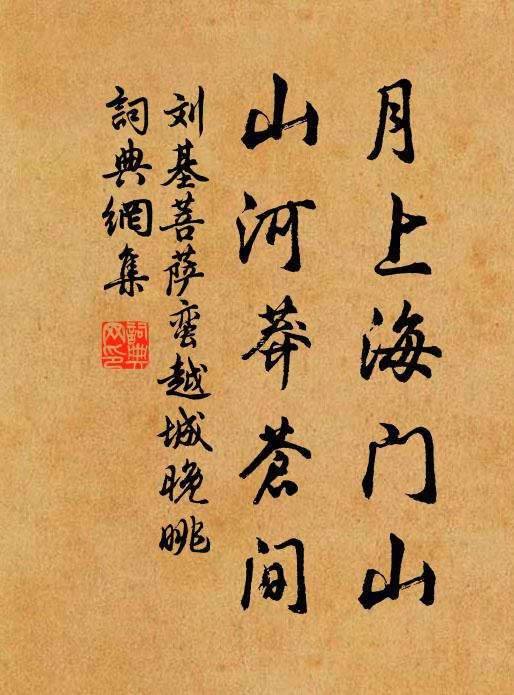 月上海门山
山河莽苍间
刘基菩萨蛮越城晚眺
詞典網集
詞典网印